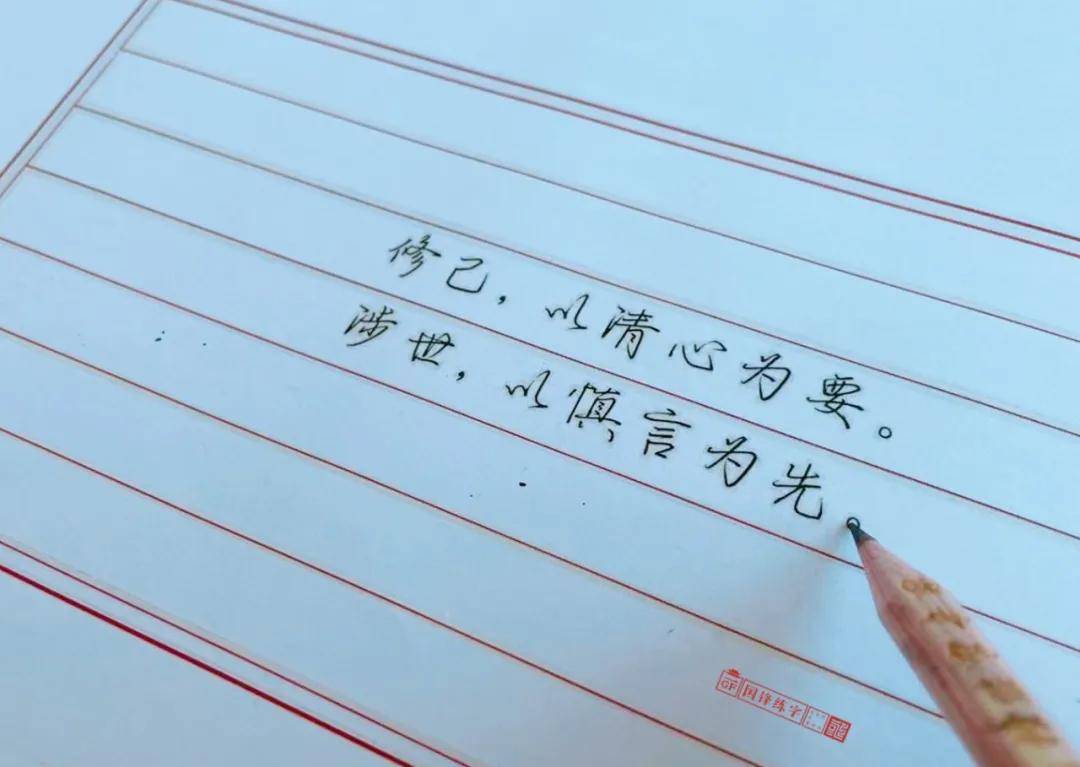 修己，以清心为要。
涉世，以慎言为先。
GF 国锋练字